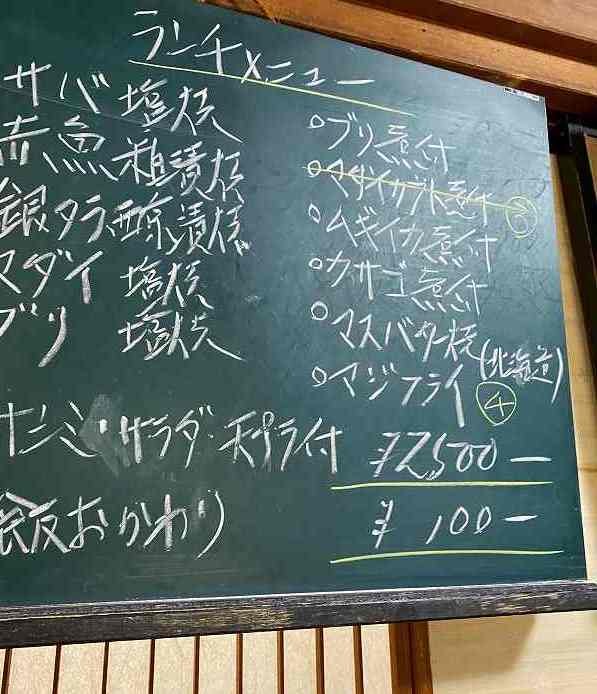 ランチメニュー
サバ 塩焼
赤魚 粗漬焼
銀タラ 西京漬焼
マダイ 塩焼
ブリ 塩焼
○ブリ煮付
○マダイカブト煮付
○ムギイカ煮付
○カサゴ煮付
○マスバター焼(北海道)
○マジフライ ④
サシミ・サラダ・天プラ付 ¥2,500ー
飯おかわり ¥100ー